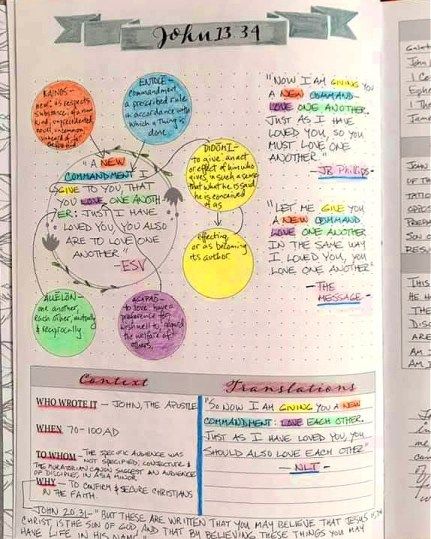 John 13:34
KAINOS-
new; as respects
substance, of a new
kind, unprecedented
novel, uncommon,
unheard of
ENTOLE-
commandment
a prescribed rule
in accordance with
which a thing is
done
"A NEW
COMMANDMENT I
GIVE TO YOU, THAT
YOU LOVE ONE ANOTH
ER: JUST AS I HAVE
LOVED YOU, YOU ALSO
ARE TO LOVE ONE
ANOTHER."
-ESV
DIDOMI-
to give, an act
or effect of him who
gives, in such a sense
that what he is said
he is conceived
of as
effecting
or as becoming
its author
ALLELON-
one another,
each other, mutually
& reciprocally
AGAPAO-
to love, have a
preference for,
wish well to, regard
the welfare of
others.
"NOW I AM GIVING YOU
A NEW COMMAND-
LOVE ONE ANOTHER.
JUST AS I HAVE
LOVED YOU, SO YOU
MUST LOVE ONE
ANOTHER."
-JB Phillips-
"LET ME GIVE YOU
A NEW COMMAND
LOVE ONE ANOTHER
IN THE SAME WAY
I LOVED YOU, YOU
LOVE ONE ANOTHER"
-THE
MESSAGE-
Context
WHO WROTE IT - JOHN, THE APOSTLE
WHEN 70-100 AD
TO WHOM - THE SPECIFIC AUDIENCE WAS
NOT SPECIFIED, CONJECTURE &
THE MURATORIAN CANON SUGGEST AN AUDIENCE
OF DISCIPLES IN ASIA MINOR
WHY - TO CONFIRM & SECURE CHRISTIANS
IN THE FAITH.
Translations
"SO NOW I AM GIVING YOU A NEW
COMMANDMENT: LOVE EACH OTHER.
JUST AS I HAVE LOVED YOU, YOU
SHOULD ALSO LOVE EACH OTHER"
-NLT-
JOHN 20:31- "BUT THESE ARE WRITTEN THAT YOU MAY BELIEVE THAT JESUS IS THE
CHRIST, IS THE SON OF GOD AND THAT BY BELIEVING THESE THINGS YOU MAY
HAVE LIFE IN HIS NAME."
JOHN
THIS